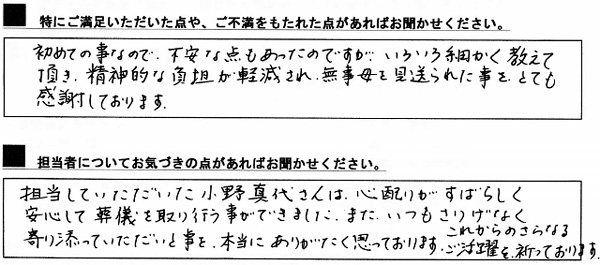 ■ 特にご満足いただいた点や、ご不満をもたれた点があればお聞かせください。
初めての事なので、不安な点もあったのですが、いろいろ細かく教えて
頂き、精神的な負担が軽減され、無事母を見送られた事を、とても
感謝しております。
■ 担当者についてお気づきの点があればお聞かせください。
担当していただいた小野真代さんは、心配りがすばらしく
安心して葬儀を取り行う事ができました。また、いつもさりげなく
寄り添っていただいた事を、本当にありがたく思っております。これからのさらなる
ご活躍を、祈っております。